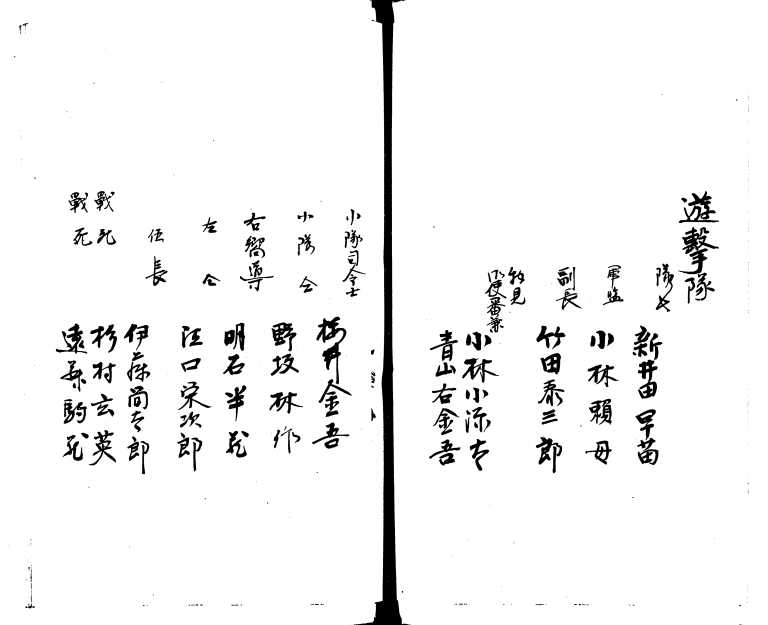 遊撃隊
隊長 新井田早苗
軍監 小林頼母
副長 竹田泰三郎
小林小源太
御使番兼 青山右金吾
小隊司令士 桜井金吾
小隊 仝 野坂林作
右嚮導 明石半蔵
左 仝 江口栄次郎
伍長 伊藤尚太郎
戰死 杉村玄英
戰死 遠藤駒尤